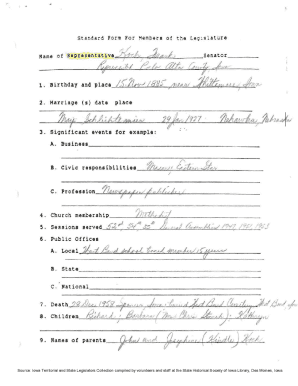 Standard Form For Members of the Legislature
Name of Representative Hock, Frank Senator
Represented Palo Alto County, Iowa
1. Birthday and place 15 Nov 1895 near Whittemore, Iowa
2. Marriage (s) date place
29 Jan 1927 Nehawka, Nebraska
3. Significant events for example:
A. Business
B. Civic responsibilities Eastern Star
C. Profession Newspaper publisher
4. Church membership Methodist
5. Sessions served 52nd 54th 55th General Assemblies 1947, 1951, 1953
6. Public Offices
A. Local school board member 15 years
B. State
C. National
7. Death Iowa
8. Children Richard; Barbara (Mrs.
9. Names of parents John and Josephine
Source: Iowa Territorial and State Legislators Collection compiled by volunteers and staff at the State Historical Society of Iowa Library, Des Moines, Iowa.